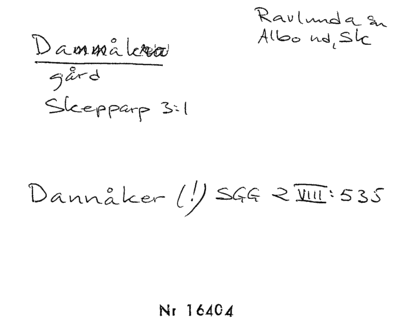 Dammåkra
Ravlunda sn
Albo hd, Sk
gård
Skepparp 3:1
Dannåker (!) SGG 2 VIII: 535
Nr 16404